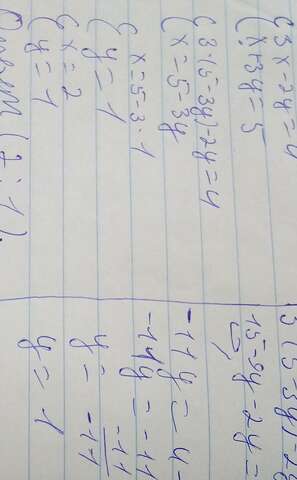 {3x-2y=4
{x+3y=5
{3·(5-3y)-2y=4
{x=5-3y
x=5-3·1
{y=1
{x=2
{y=1
Ответ (2;1).
3(5-3y)-2y
15-9y-2y=
-11y=4-
-11y=-11
y=-11
-11
y=1